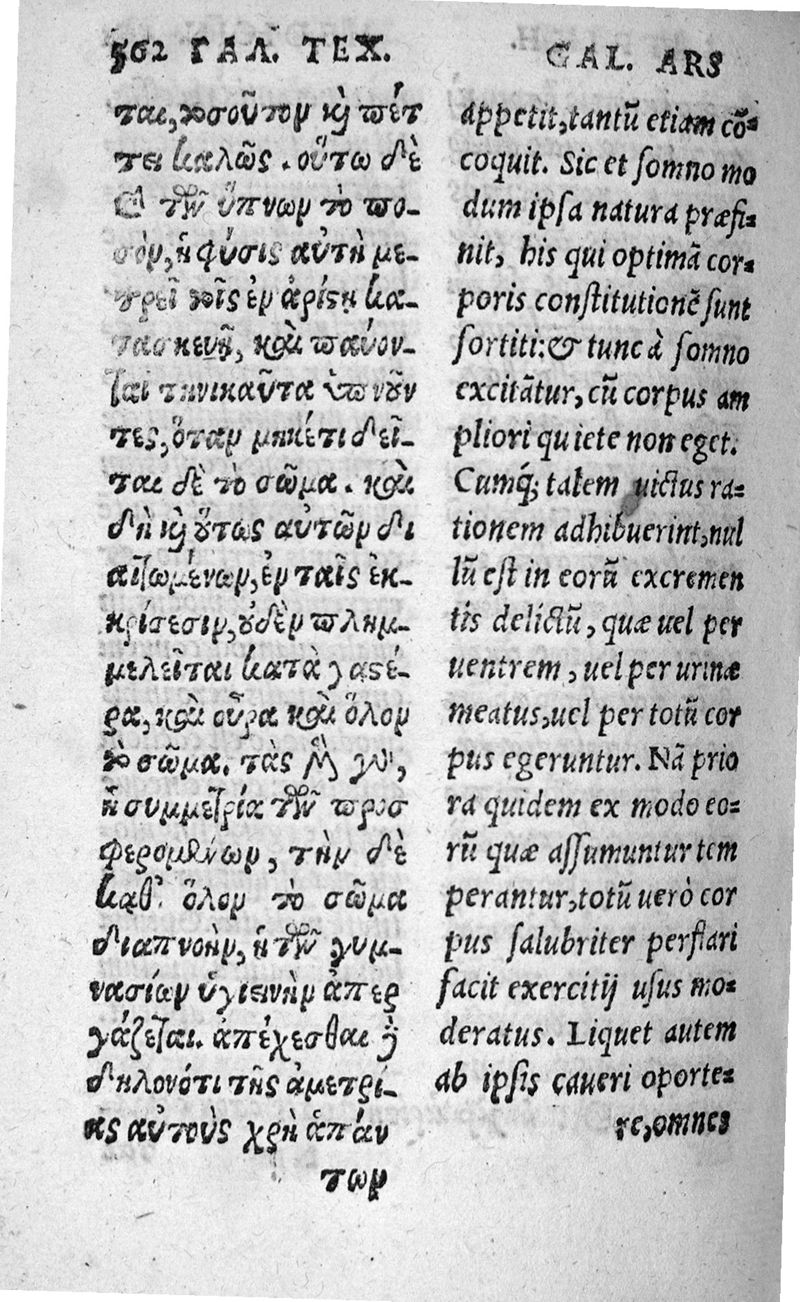 562 ΓΑΛ. ΤΕΧ.
ται, τοσοῦτον κὶ πέτ
τει καλῶς . οὕτω δὲ
καὶ τῶν ὕπνων τὸ πο-
σὸν, ἡ φύσις αὐτὴ με-
τρεῖ τοῖς ἐν ἀρίστῃ κα-
τασκευῇ, καὶ παύον-
ται τηνικαῦτα ὑπνοῦν
τες, ὅταν μηκέτι δεῖ-
ται δὲ τὸ σῶμα . καὶ
δὴ κὶ οὕτως αὐτῶν δι
αιτωμένων, ἐν ταῖς ἐκ-
κρίσεσιν, οὐδὲν πλημ-
μελεῖται κατὰ γαστέ-
ρα, καὶ οὖρα καὶ ὅλον
τὸ σῶμα. τὰς μὲν γὰρ,
ἡ συμμετρία τῶν προσ
φερομένων, τὴν δὲ
καθ' ὅλον τὸ σῶμα
διαπνοὴν, ἡ τῶν γυμ-
νασίων ὑγιεινὴν ἀπερ
γάζεται. ἀπέχεσθαι δὲ
δηλονότι τῆς ἀμετρί-
ας αὐτοὺς χρὴ ἁπάν
των
GAL. ARS
appetit, tantũ etiam cõ-
coquit. Sic et ſomno mo
dum ipſa natura præfi-
nit, his qui optimã cor-
poris conſtitutionẽ ſunt
ſortiti: & tunc à ſomno
excitãtur, cũ corpus am
pliori quiete non eget.
Cumq́; talem uictus ra-
tionem adhibuerint, nul
lũ eſt in eorũ excremen
tis delictũ, quæ uel per
uentrem, uel per urinæ
meatus, uel per totũ cor
pus egeruntur. Nã prio
ra quidem ex modo eo-
rũ quæ aſſumuntur tem
perantur, totũ uerò cor
pus ſalubriter perflari
facit exercitij uſus mo-
deratus. Liquet autem
ab ipſis caueri oporte-
re, omnes